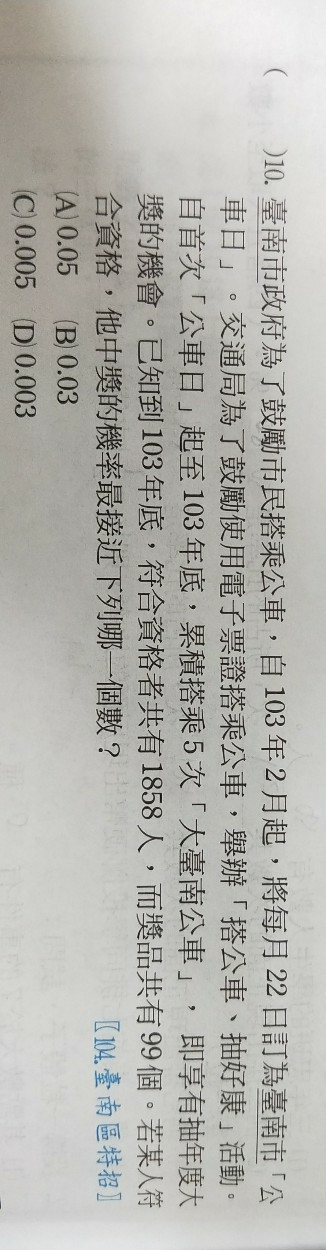 (　　)10. 臺南市政府為了鼓勵市民搭乘公車，自103年2月起，將每月22日訂為臺南市「公
車日」。交通局為了鼓勵使用電子票證搭乘公車，舉辦「搭公車、抽好康」活動。
自首次「公車日」起至103年底，累積搭乘5次「大臺南公車」，即享有抽年度大
獎的機會。已知到103年底，符合資格者共有1858人，而獎品共有99個。若某人符
合資格，他中獎的機率最接近下列哪一個數？
〖104.臺南區特招〗
(A)0.05　(B)0.03
(C)0.005　(D)0.003